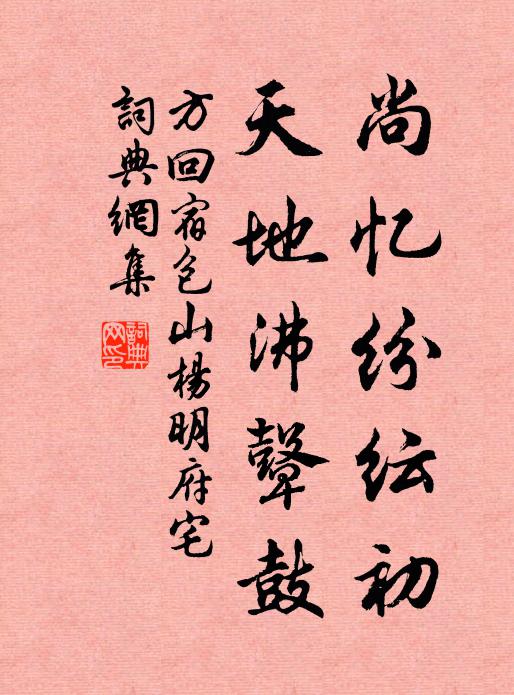 尚忆纷纭初
天地沸鼙鼓
方回宿包山楊明府宅
詞典網集
詞典网印